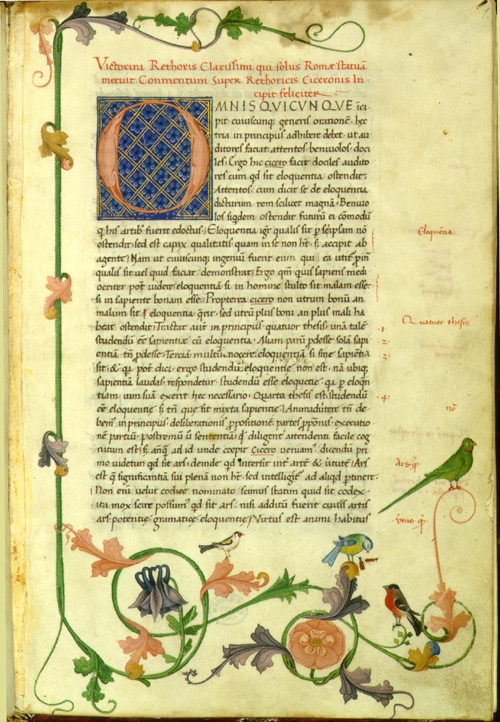 Victorini Rethoris Clarissimi qui solus Romæ statuā
meruit Commentum Super Rethoricis Ciceronis In
cipit feliciter
OMNIS QVICVNQVE ici
pit cuiuscunq; generis orationē hec
tria in principiis adhibere debet ut au
ditores faciat attentos beniuolos doci
les: Ergo hic cicero facit dociles audito
res cum qd sit eloquentia ostendit:
Attentos cum dicit se de eloquentia
dicturum rem scilicet magnā. Beniuo
los siqdem ostendit futurū ei cōmodū
q his artib; fuerit edoctus. Eloquentia igr qualis sit p seipsam nō
ostendit sed est capax qualitatis quam in se non ht sz accipit ab
agente. Nam ut cuiuscunq; ingeniū fuerit eum qui ea utitr pm
qualis sit uel quid faciat demonstrat. Ergo qm quis sapiens medi
ocriter pot uideri eloquentiā si in homine stulto sit malam esse:
si in sapiente bonam esse: Propterea cicero non utrum bonū an
malum sit eloquentia qrit sed utrū plus boni an plus mali ha
beat ostendit: Tractat autē in principiis quatuor thesis unā talē
studendū eē sapientiæ cū eloquentia. Aliam parū pdesse solā sapi
entiā tn pdesse. Terciā multū nocere eloquentiā si sine sapiētia
sit & qa pot dici ergo studendū eloquentie non est. nā ubiq;
sapientiā laudas respondetur studendū esse eloquētie qa p eloqn
tiam uim suā exerit hec necessario. Quarta thesis est studendū
eē eloquentie sz tn que sit mixta sapientie. Animaduerte tn de
bem in principiis deliberationis ppositionē partes pponis executio
nē partiū postremū ū sententiā q diligent attendenti facile cog
nitum est sz anq ad id unde coepit cicero ueniam dicendū pri
mo uidetur qd sit ars deinde qd intersit int arte & uirtutē Ars
est q significantiā sui plenā non ht sed intelligit ad aliqd ptinere.
Non eni uelut codice nominato scimus statim quid sit codex
ita mox scire possum qd sit ars nisi additū fuerit cuius artis
ars potentie gramatice eloquentie. Virtus est animi habitus
Eloquētia
Quatuor thesis
.1.
.2.
.3.
.4.
nō
Ars q